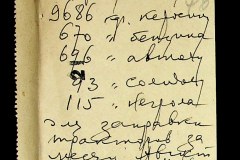 9686 кг. керосину
670 " бензина
696 " автолу
93 " солидолу
115 " нигрола
для заправки
тракторов за
месяц Август